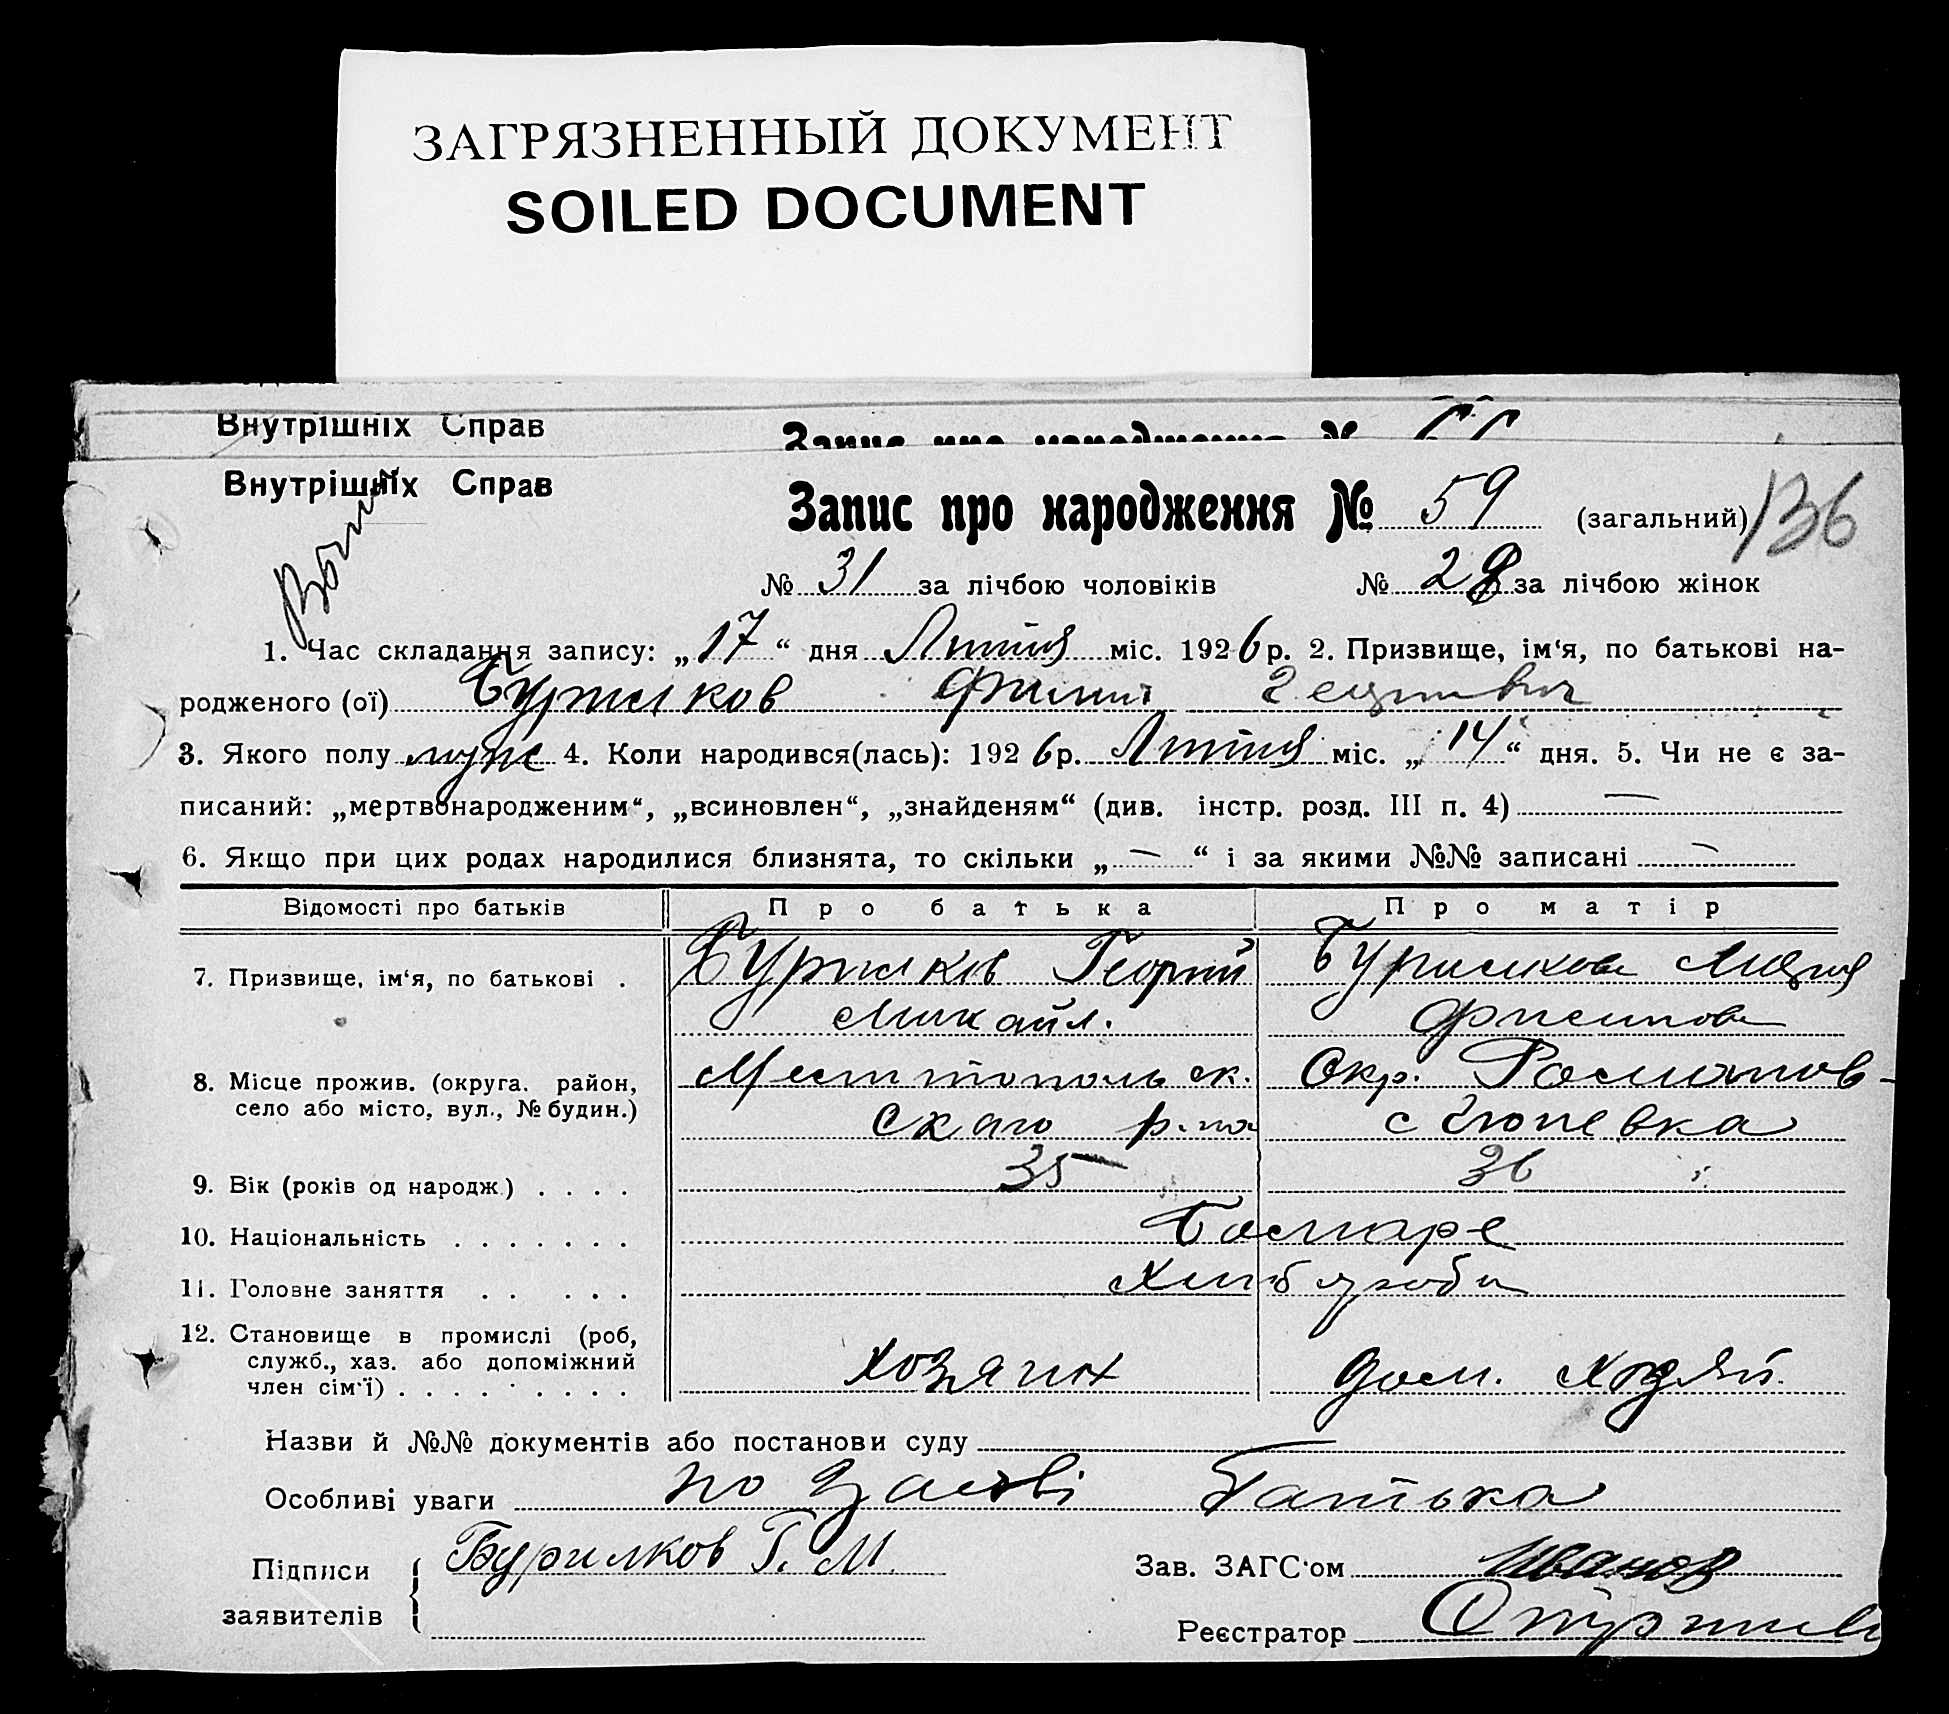 ЗАГРЯЗНЕННЫЙ ДОКУМЕНТ
SOILED DOCUMENT
Внутрішніх Справ
Запис про народження №
Внутрішніх Справ
Запис про народження № 59 (загальний) 136
№ 31 за лічбою чоловіків № 28 за лічбою жінок
1. Час складання запису: „17“ дня Лютня міс. 1926 р. 2. Призвище, ім‘я, по батькові на-
родженого (ої) Бурилков Филип
3. Якого полу муж 4. Коли народився(лась): 1926 р. Лютня міс. „14“ дня. 5. Чи не є за-
писаний: „мертвонародженим“, „всиновлен“, „знайденям“ (див. інстр. розд. III п. 4) —
6. Якщо при цих родах народилися близнята, то скільки „—“ і за якими №№ записані —
Відомості про батьків Про батька Про матір
7. Призвище, ім‘я, по батькові . Бурилков Георгій Бурилкова
Михайл. Филипова
8. Місце прожив. (округа. район, Мелітопольск. Окр. Романов-
село або місто, вул., № будин.) скаго р-на с
9. Вік (років од народж.) . . . . 35 36
10. Національність . . . . . . . Болгаре
11. Головне заняття . . . . . Хліборобы
12. Становище в промислі (роб, хозяин дом. хозяй.
служб., хаз. або допоміжний
член сім‘ї) . . . . . . . . . .
Назви й №№ документів або постанови суду
Особливі уваги по заяві Батька
Підписи Бурилков Г. М. Зав. ЗАГС‘ом Иванов
заявителів Реєстратор